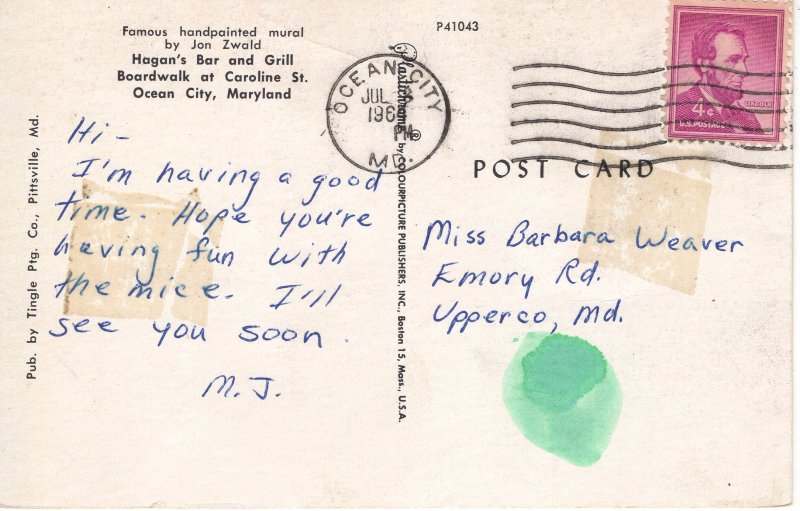 Famous handpainted mural
by Jon Zwald
Hagan's Bar and Grill
Boardwalk at Caroline St.
Ocean City, Maryland
P41043
OCEAN CITY
JUL
196
MD.
4¢
LINCOLN
U.S. POSTAGE
POST CARD
Hi -
I'm having a good
time. Hope you're
having fun with
the mice. I'll
see you soon.
M.J.
Miss Barbara Weaver
Emory Rd.
Upperco, Md.
Pub. by Tingle Ptg. Co., Pittsville, Md.
Plastichrome® by COLOURPICTURE PUBLISHERS, INC., Boston 15, Mass., U.S.A.